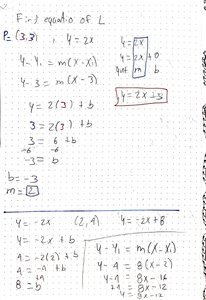 Find equatio of L
P= (3,3) , y = 2x
y = 2x
y = 2x + 0
y-int m b
y - y₁ = m(x - x₁)
y - 3 = m(x - 3)
y = 2x + 3
y = 2(3) + b
3 = 2(3) + b
3 = 6 + b
-6 -6
-3 = b
b = -3
m = 2
y = -2x (2,4) y = -2x + 8
y = -2x + b
4 = -2(2) + b
4 = -4 + b
+4
8 = b
y - y₁ = m(x - x₁)
y - 4 = 8(x - 2)
y - 4 = 8x - 16
+4 = 8x - 12
y = 8x - 12